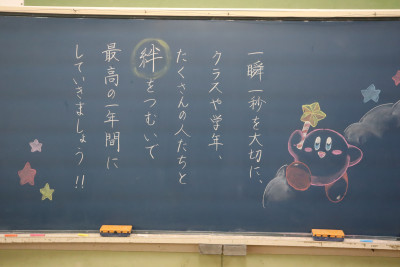 一瞬一秒を大切に、
クラスや学年、
たくさんの人たちと
絆をつむいで
最高の一年間に
していきましょう!!